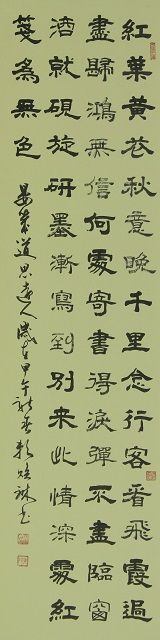 紅葉黃花秋意晚千里念行客看飛霞過
盡歸鴻無信何處寄書得淚彈不盡臨窗
滴就硯旋研墨漸寫到別來此情深處紅
箋為無色 晏幾道思遠人歲在甲午新春